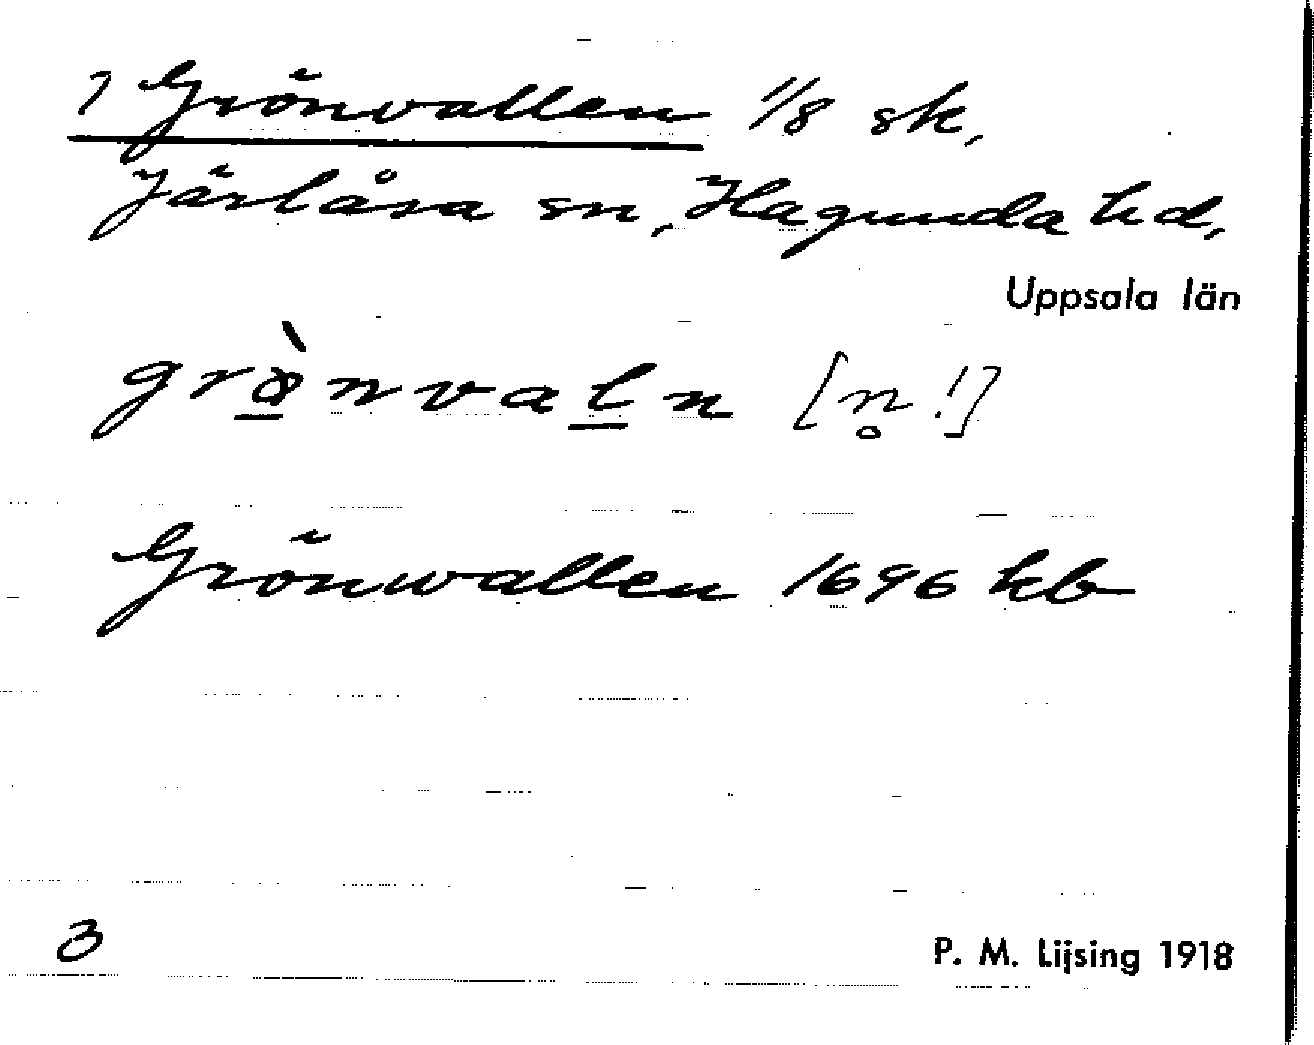 1 Grönvallen 1/8 sk,
Järlåsa sn, Hagunda hd,
Uppsala län
grø̀nvaln [n̥!]
Grönwallen 1696 kb
3
P. M. Lijsing 1918